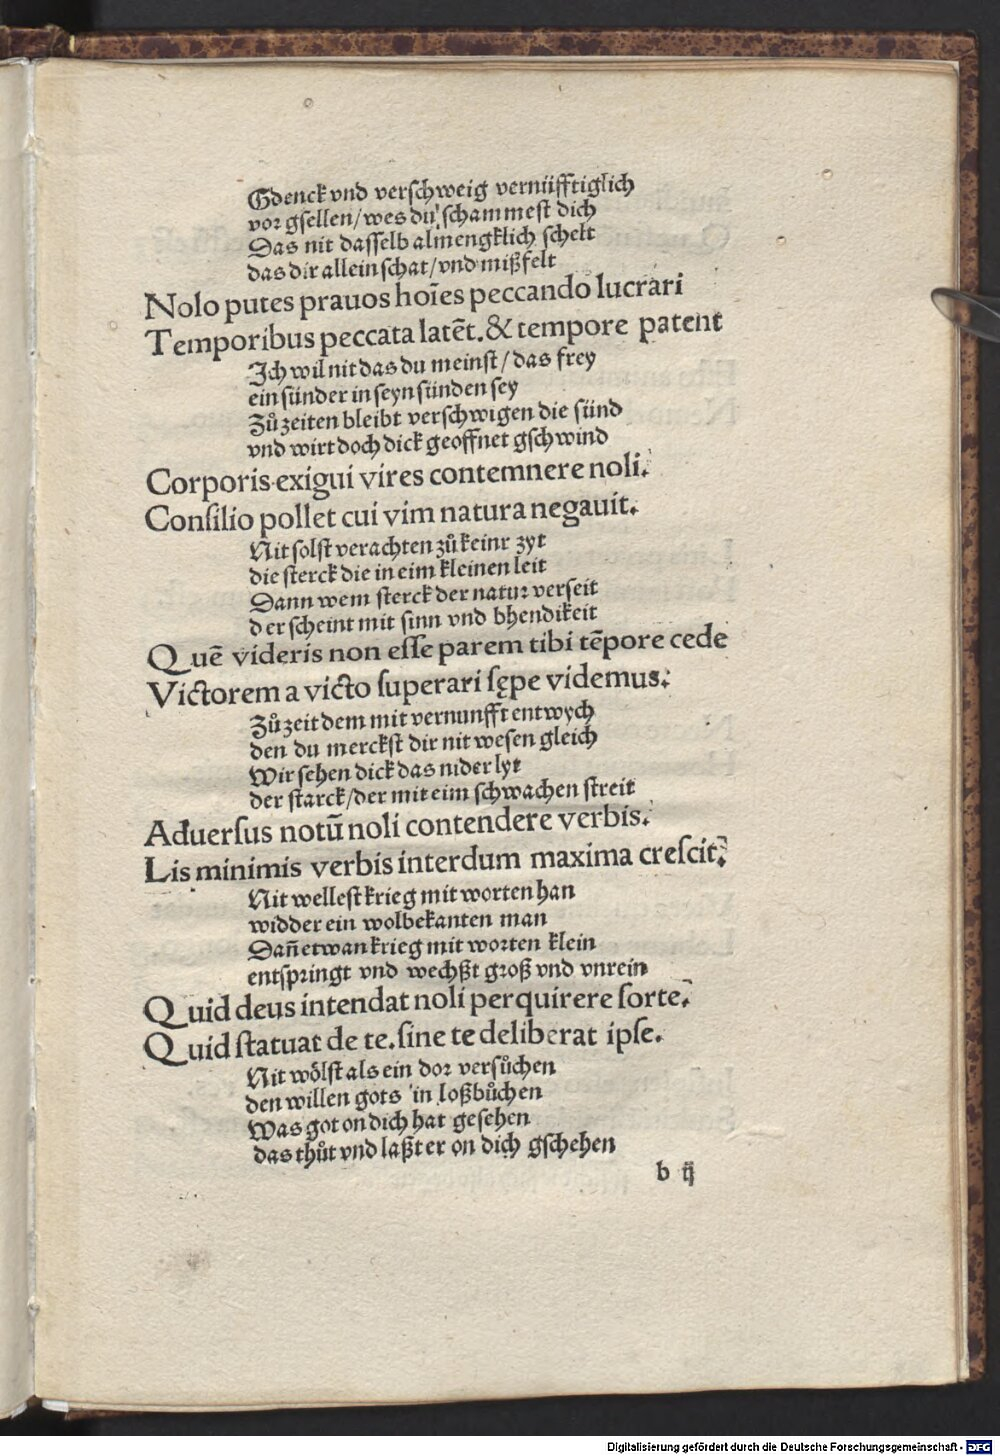 Gdenck vnd verschweig vernüfftiglich
vor gsellen/wes du schammest dich
Das nit dasselb almengklich schelt
das dir allein schat/vnd mißfelt
Nolo putes prauos hoīes peccando lucrari
Temporibus peccata latēt.& tempore patent
Ich wil nit das du meinst/das frey
ein sünder in seyn sünden sey
Zů zeiten bleibt verschwigen die sünd
vnd wirt doch dick geoffnet gschwind
Corporis exigui vires contemnere noli.
Consilio pollet cui vim natura negauit.
Nit solst verachten zů keinr zyt
die sterck die in eim kleinen leit
Dann wem sterck der natur verseit
der scheint mit sinn vnd bhendikeit
Quē videris non esse parem tibi tēpore cede
Victorem a victo superari sępe videmus.
Zů zeit dem mit vernunfft entwych
den du merckst dir nit wesen gleich
Wir sehen dick das nider lyt
der starck/der mit eim schwachen streit
Aduersus notū noli contendere verbis.
Lis minimis verbis interdum maxima crescit.
Nit wellest krieg mit worten han
widder ein wolbekanten man
Dañ etwan krieg mit worten klein
entspringt vnd wechßt groß vnd vnrein
Quid deus intendat noli perquirere sorte.
Quid statuat de te.sine te deliberat ipse.
Nit wölst als ein dor versůchen
den willen gots in loßbůchen
Was got on dich hat gesehen
das thůt vnd laßt er on dich gschehen
b ij
Digitalisierung gefördert durch die Deutsche Forschungsgemeinschaft - DFG